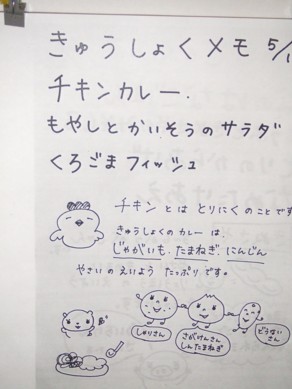 きゅうしょくメモ 5/1
チキンカレー.
もやしとかいそうのサラダ
くろごまフィッシュ
チキンとは とりにくのことです
きゅうしょくのカレーは、
じゃがいも、たまねぎ、にんじん
やさいのえいようたっぷりです。
さがけんさん
しんたまねぎ
どうさい
さん